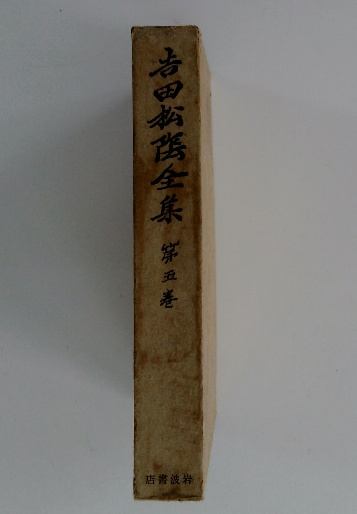 吉田松陰全集
第五巻
店書波岩